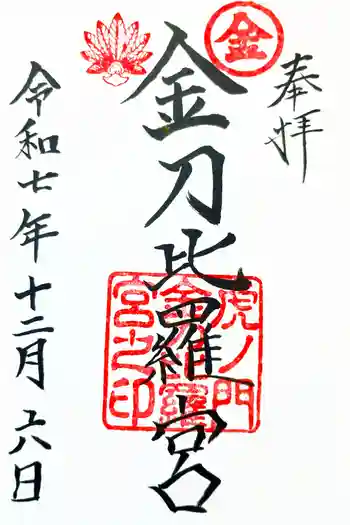 奉拝
金
金刀比羅宮
虎ノ門
金刀比羅
宮之印
令和七年十二月十六日